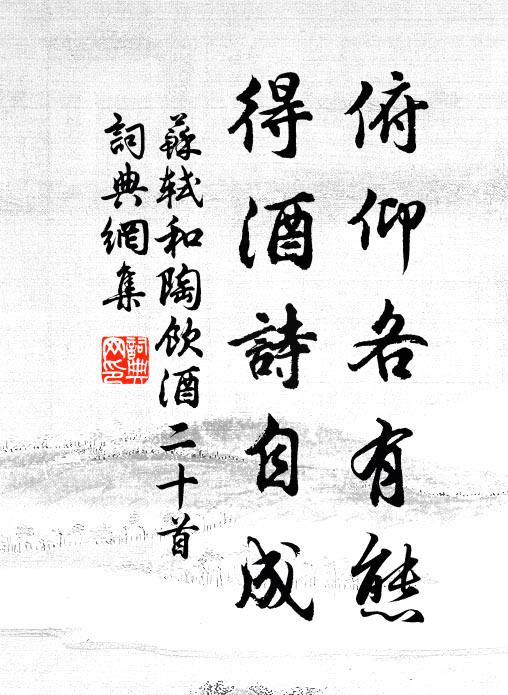 俯仰各有態
得酒詩自成
蘇軾和陶飲酒二十首
詞典網集
詞典网印